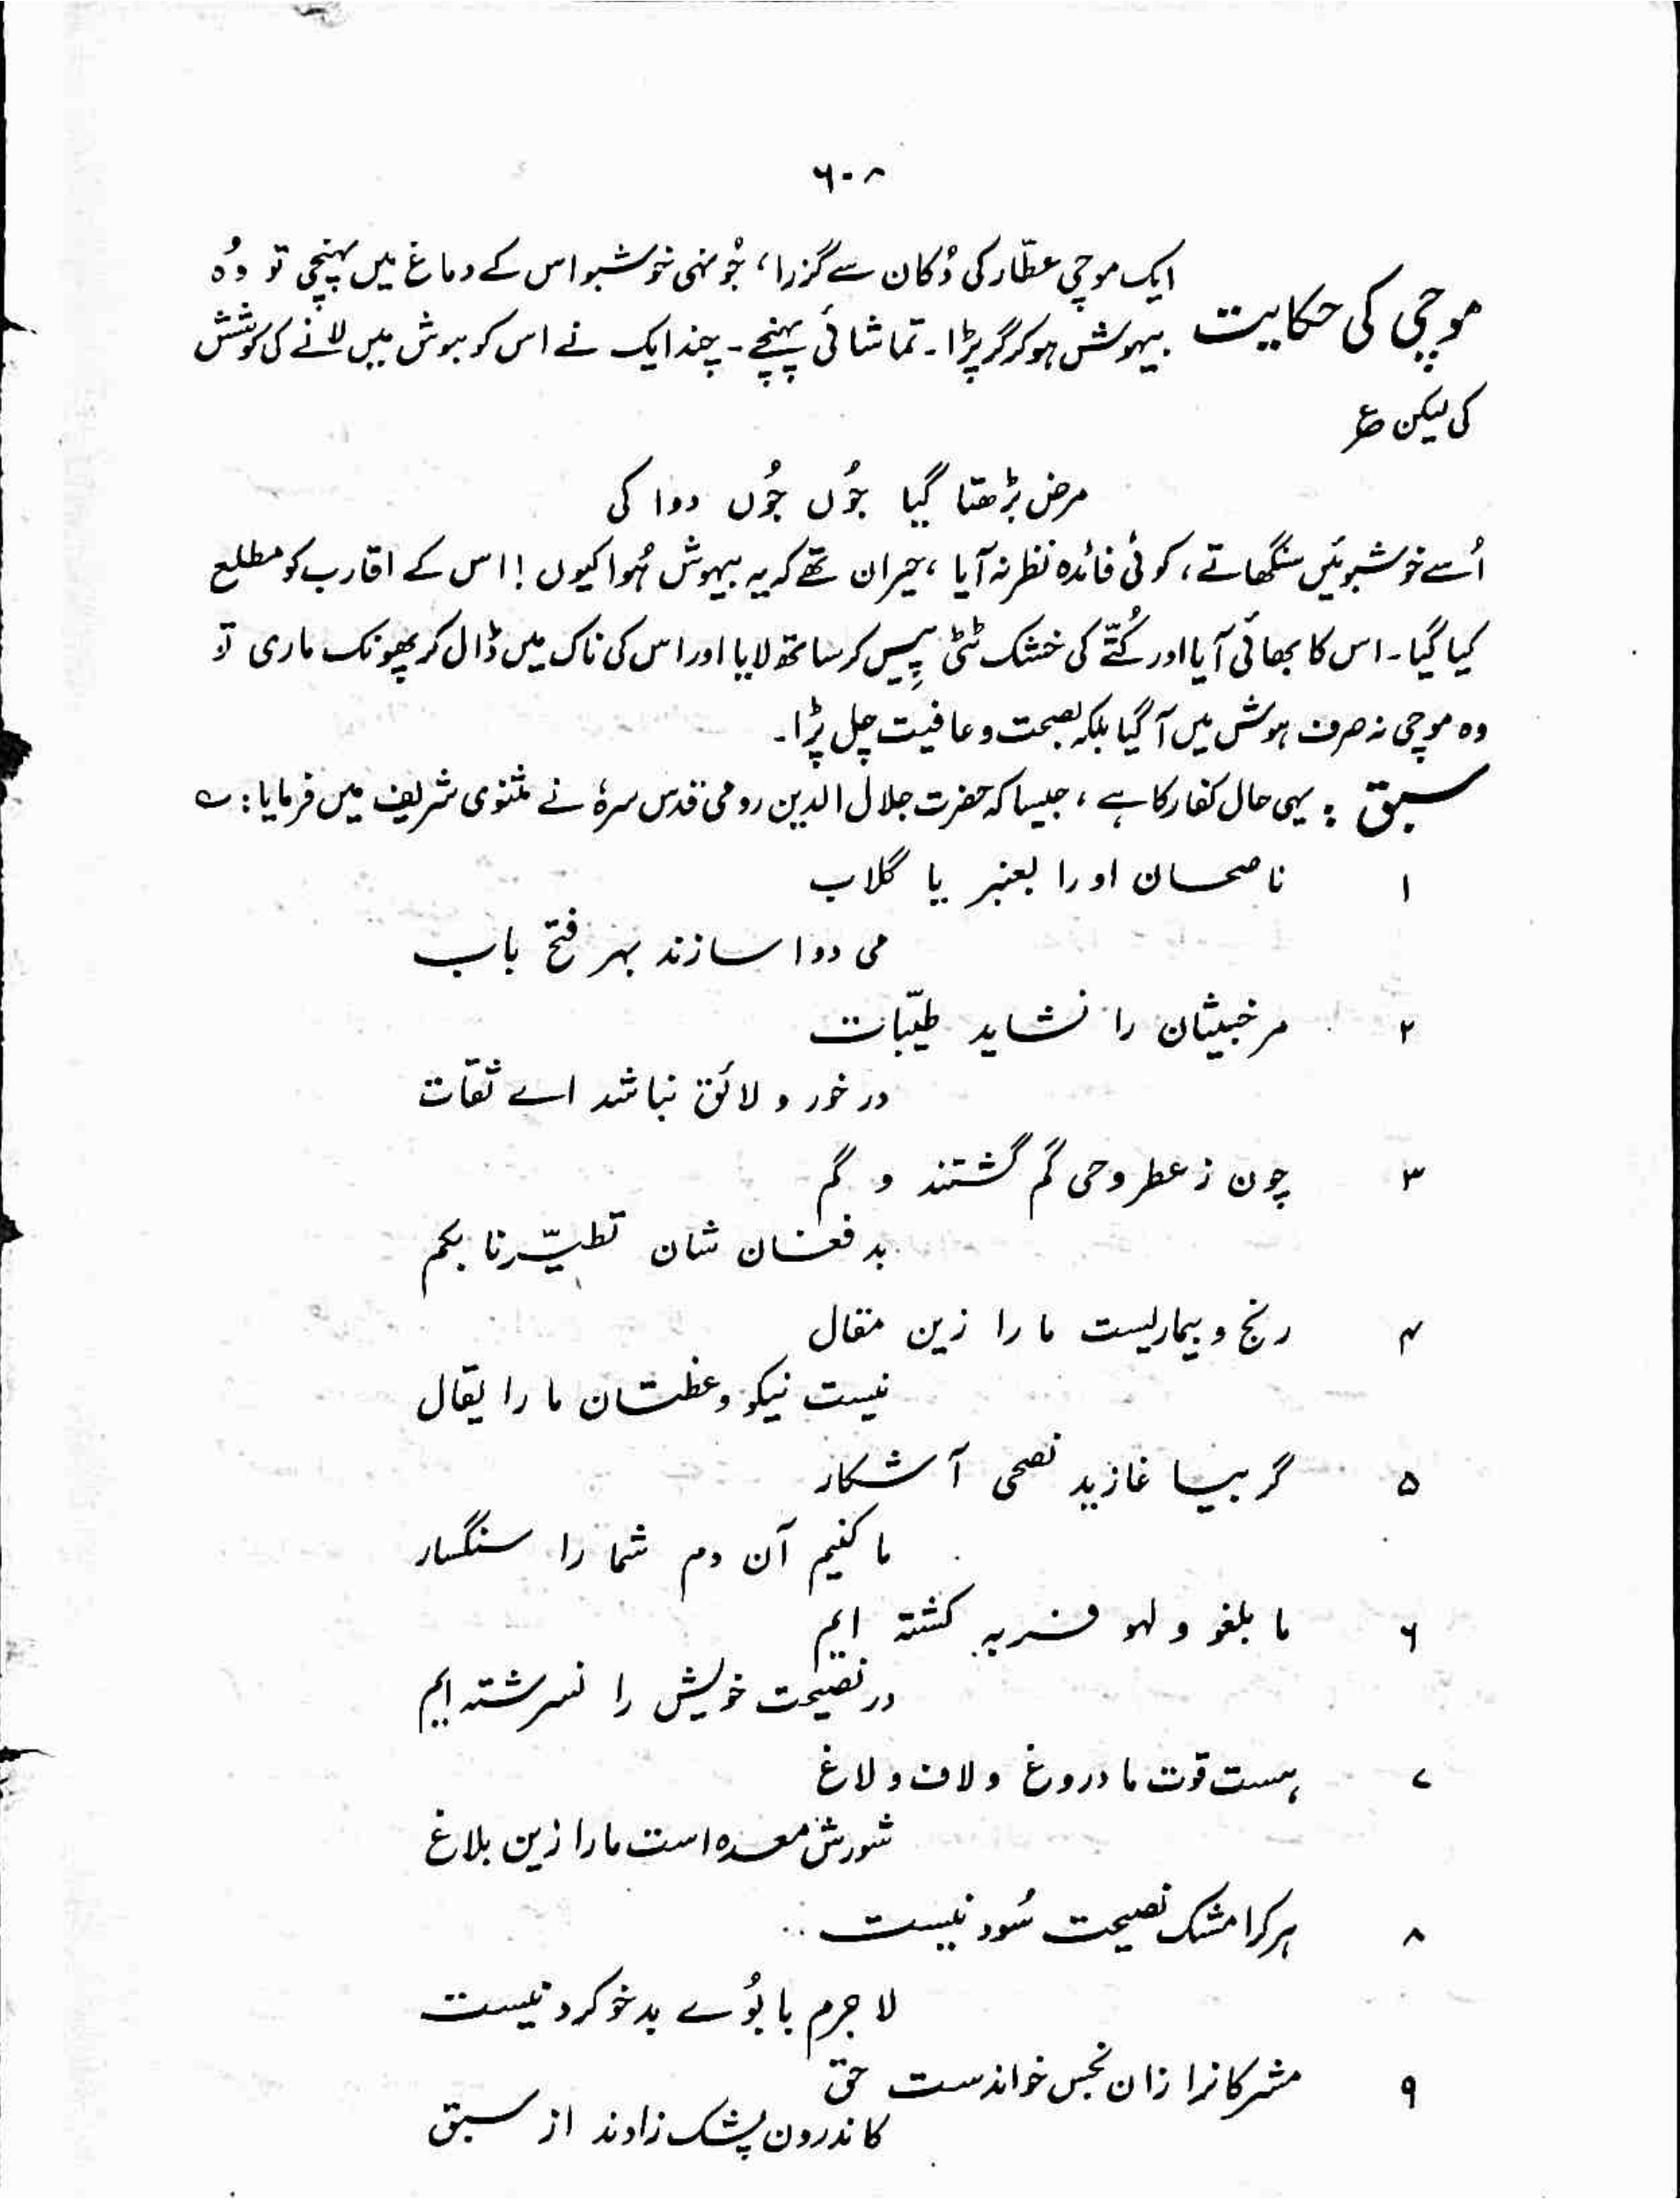 ۶۰۸
موچی کی حکایت ایک موچی عطّار کی دُکان سے گزرا، جُونہی خوشبو اس کے دماغ میں پہنچی تو وُہ
بیہوش ہو کر گر پڑا۔ تماشائی پہنچے۔ چند ایک نے اس کو ہوش میں لانے کی کوشش
کی لیکن ؏
مرض بڑھتا گیا جُوں جُوں دوا کی
اُسے خوشبوئیں سنگھاتے، کوئی فائدہ نظر نہ آیا، حیران تھے کہ یہ بیہوش ہُوا کیوں! اس کے اقارب کو مطلع
کیا گیا۔ اس کا بھائی آیا اور کُتّے کی خشک ٹٹی پِیس کر ساتھ لایا اور اس کی ناک میں ڈال کر پھونک ماری تو
وہ موچی نہ صرف ہوش میں آگیا بلکہ بصحت و عافیت چل پڑا۔
سبق : یہی حال کفار کا ہے، جیسا کہ حضرت جلال الدین رومی قدس سرہٗ نے مثنوی شریف میں فرمایا: ؎
۱ ناصحان او را بعنبر یا گلاب
می دوا سازند بہر فتح باب
۲ مر خبیثان را نشاید طیّبات
در خور و لائق نباشد اے ثقات
۳ چون ز عطر وحی گم گشتند و گم
بد فغان شان تطیّرنا بکم
۴ رنج و بیماریست ما را زین مقال
نیست نیکو وعظتان ما را بقال
۵ گر بیا غازید نصحی آشکار
ما کنیم آن دم شما را سنگسار
۶ ما بلغو و لہو فربہ گشتہ ایم
در نصیحت خویش را نسرشتہ ایم
۷ ہست قوت ما دروغ و لاف و لاغ
شورش معدہ است ما را زین بلاغ
۸ ہر کرا مشک نصیحت سُود نیست
لا جرم با بُوے بد خو کردنیست
۹ مشرکانرا زان نجس خواندست حق
کاندرون پشک زادند از سبق